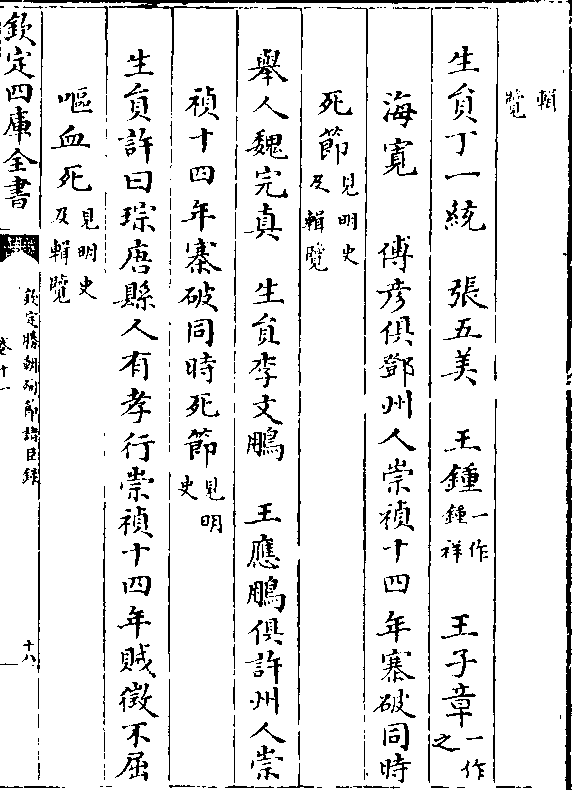 輯覽
生員丁一統　張五美　王鍾一作鍾祥　王子章一作之
海寛　傅彦俱鄧州人崇禎十四年寨破同時
死節見明史及輯覽
舉人魏完真　生員李文鵬　王應鵬俱許州人崇
禎十四年寨破同時死節見明史
生員許曰琮唐縣人有孝行崇禎十四年賊徴不屈
嘔血死見明史及輯覽
欽定四庫全書
欽定勝朝殉節諸臣録
卷十一
十八